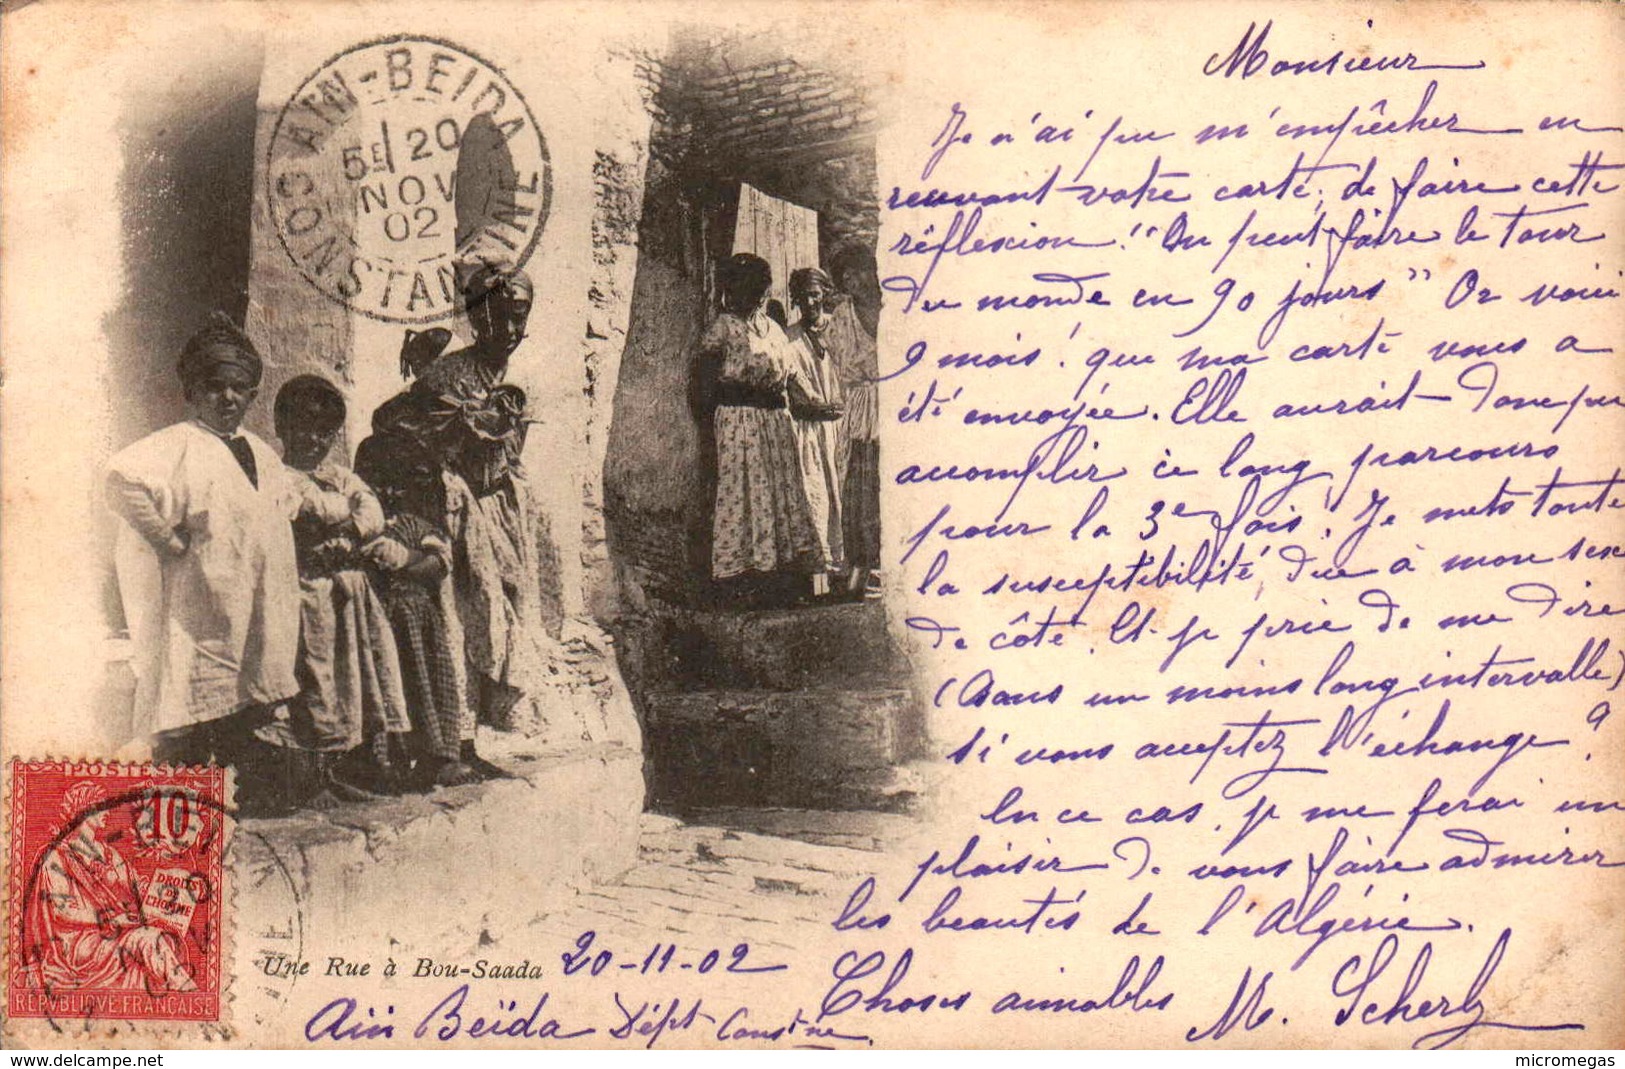 Monsieur
Je n'ai pu m'empêcher en
recevant votre carte, de faire cette
réflexion! "On peut faire le tour
du monde en 90 jours" Or voici
9 mois! que ma carte vous a
été envoyée. Elle aurait donc pu
accomplir ce long parcours
pour la 3e fois! Je mets toute
la susceptibilité due à mon sexe
de côté. Et je prie de me dire
(dans un moins long intervalle)
si vous acceptez l'échange?
En ce cas, je me ferai un
plaisir de vous faire admirer
les beautés de l'Algérie.
Choses aimables
M. Scherb
AIN-BEIDA
5E 20
NOV
02
CONSTANTINE
POSTES
10
DROITS
DE
L'HOMME
REPUBLIQUE FRANÇAISE
AIN-BEIDA
5E 20
NOV
02
Une Rue à Bou-Saada
20-11-02
Ain Beïda Dépt Const ne.
www.delcampe.net
micromegas